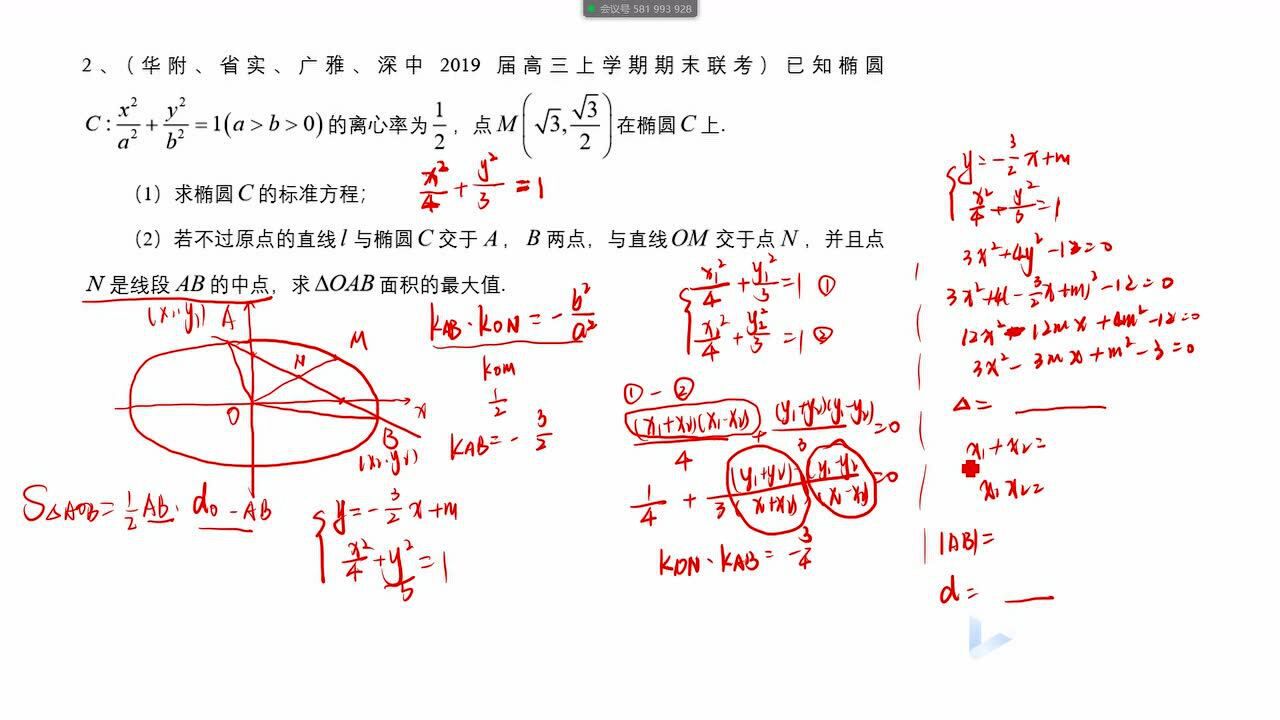 会议号 581 993 928
2、(华附、省实、广雅、深中 2019 届高三上学期期末联考)已知椭圆
C:x²/a²+y²/b²=1(a>b>0)的离心率为1/2,点M(√3,√3/2)在椭圆C上.
(1)求椭圆C的标准方程;
x²/4+y²/3=1
(2)若不过原点的直线l与椭圆C交于A,B两点,与直线OM交于点N,并且点
N是线段AB的中点,求ΔOAB面积的最大值.
(x₁,y₁) A
M
N
O
x
B
(x₂,y₂)
S△AOB=1/2 AB·d₀-AB
K_AB·K_ON=-b²/a²
K_OM
1/2
K_AB=-3/2
{y=-3/2x+m
x²/4+y²/3=1
{x₁²/4+y₁²/3=1 ①
x₂²/4+y₂²/3=1 ②
①-②
(x₁+x₂)(x₁-x₂)/4+(y₁+y₂)(y₁-y₂)/3=0
1/4+(y₁+y₂)(y₁-y₂)/3(x₁+x₂)(x₁-x₂)=0
K_ON·K_AB=-3/4
{y=-3/2x+m
x²/4+y²/3=1
3x²+4y²-12=0
3x²+4(-3/2x+m)²-12=0
12x²-12mx+4m²-12=0
3x²-3mx+m²-3=0
Δ=
x₁+x₂=
x₁x₂=
|AB|=
d=